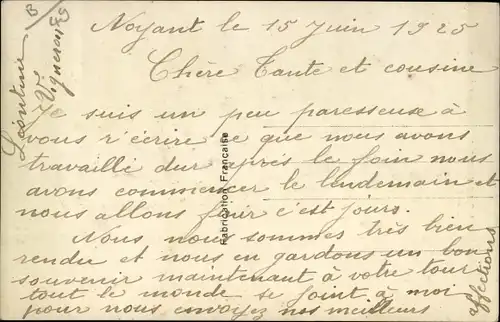 Noyant le 15 Juin 1925
Chère Tante et cousine
Je suis un peu paresseuse à
vous r'écrire ce que nous avons
travaillé dur près le foin nous
avons commencer le lendemain et
nous allons finir c'est jours.
Nous nous sommes très bien
rendu et nous en gardons un bon
souvenir maintenant à votre tour
tout le monde se joint à moi
pour nous envoyez nos meilleurs
affections
Léontine
B
Fabrication Française